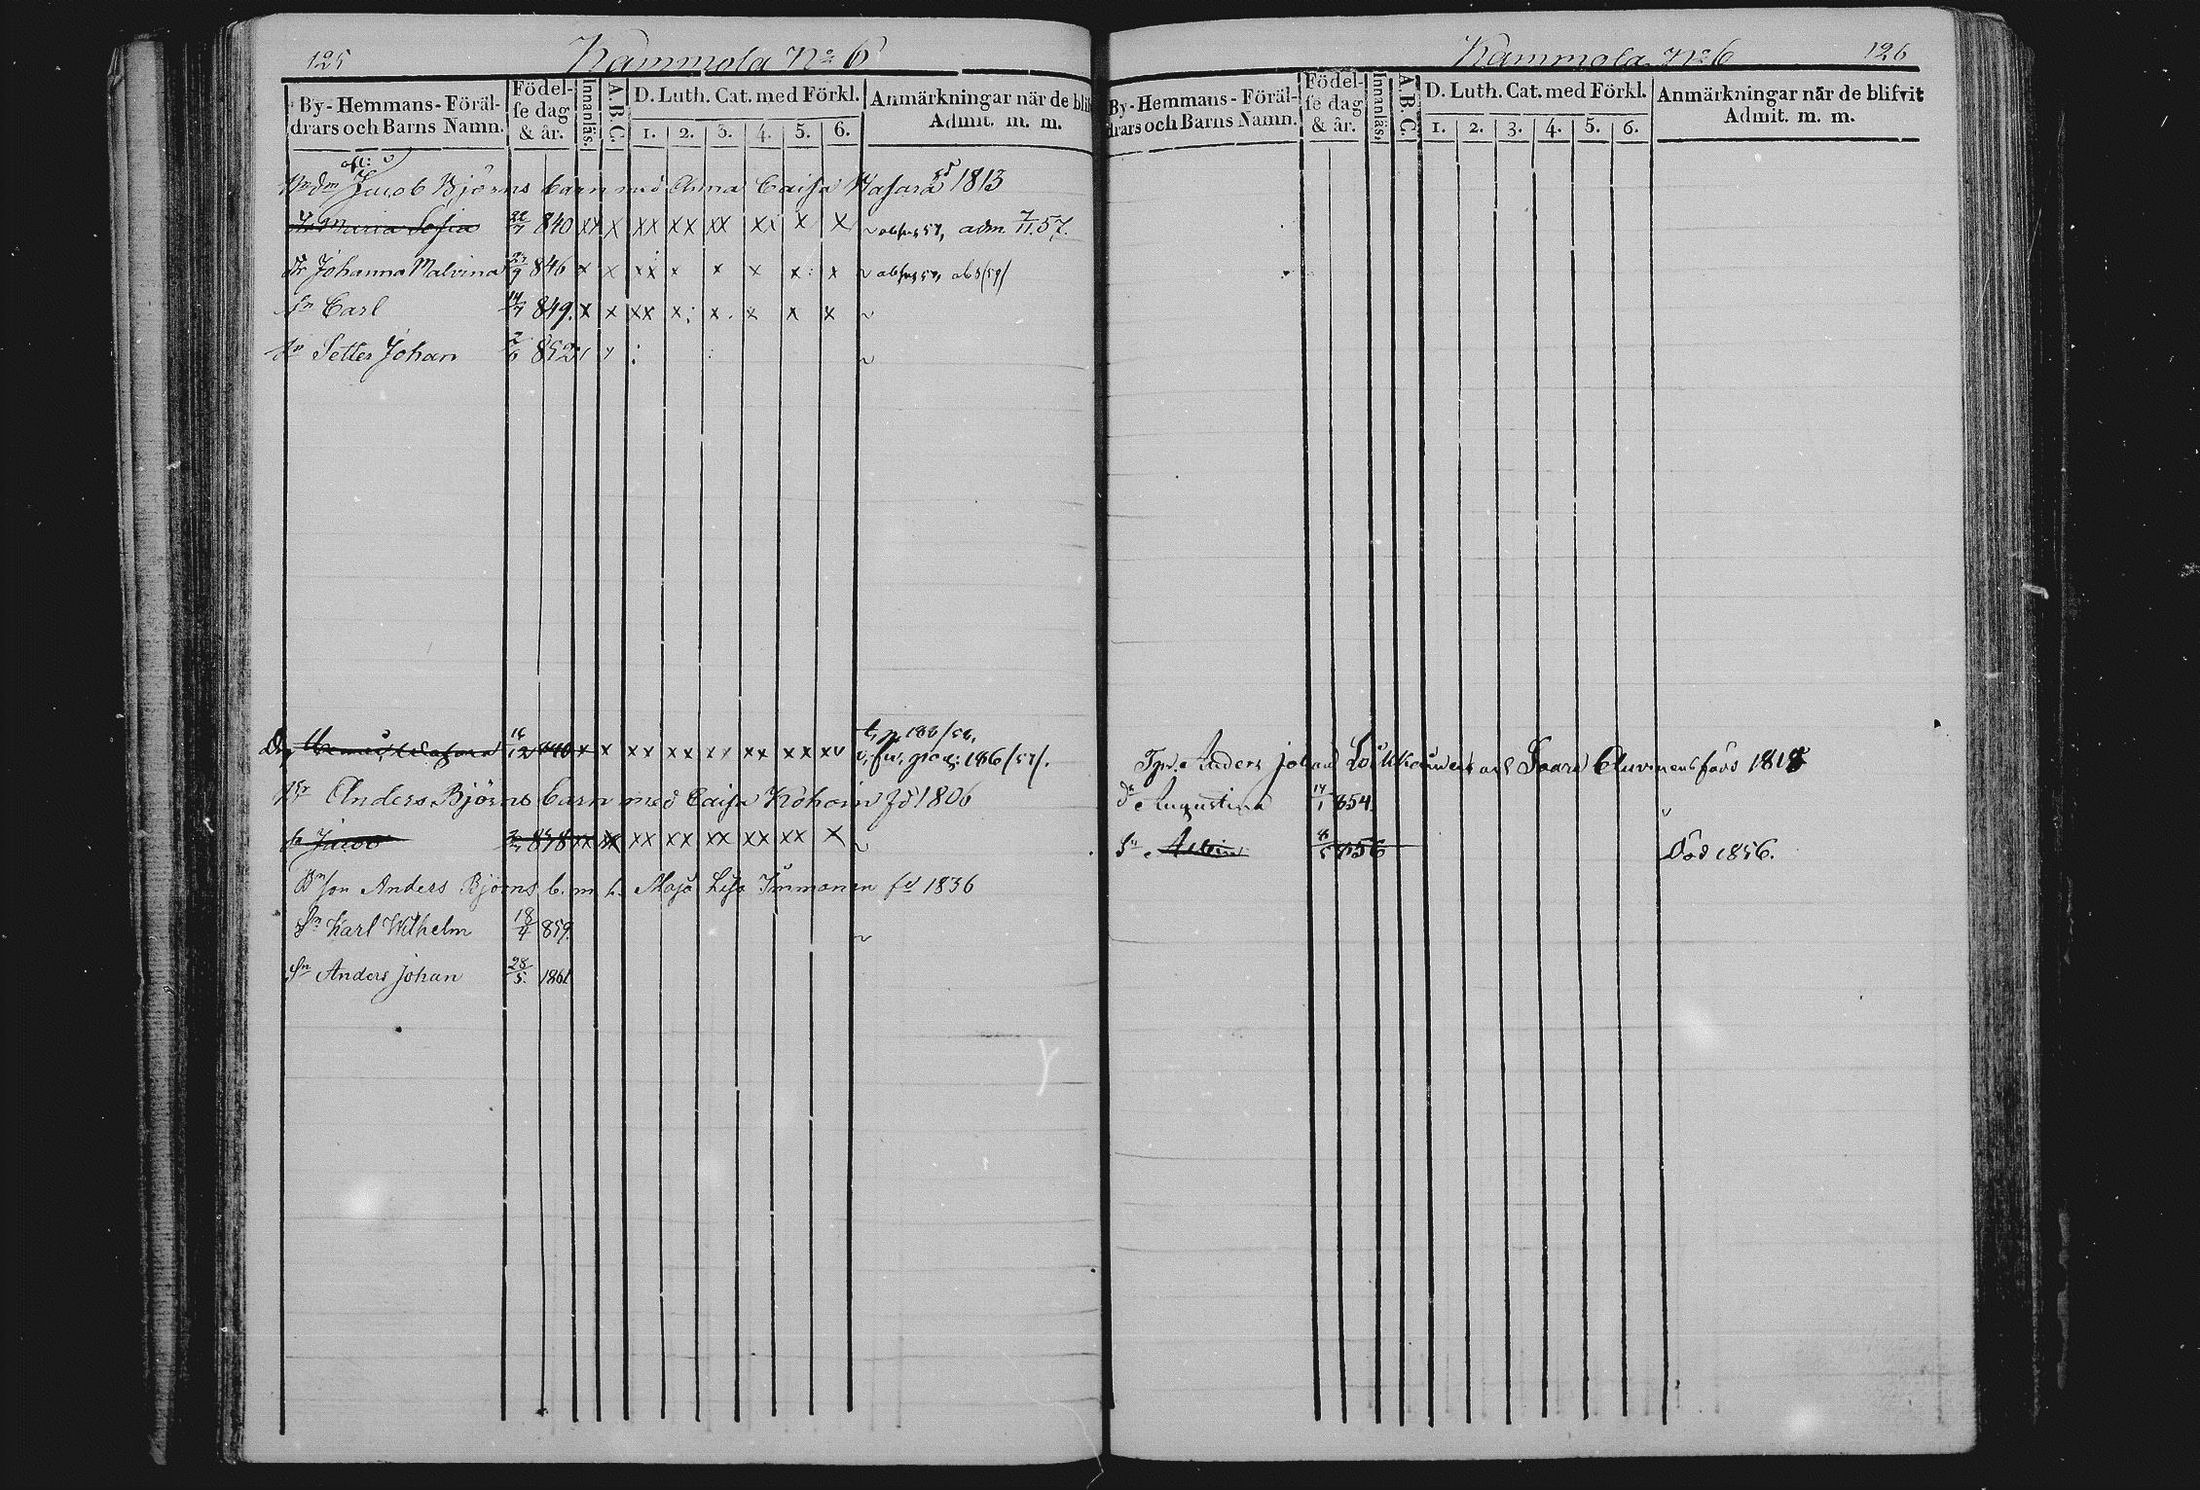 125
Kammola No 6
By-Hemmans-Föräl-
drars och Barns Namn.
Födel-
se dag
& år.
Innanläs.
A.B.C.
D. Luth. Cat. med Förkl.
1. 2. 3. 4. 5. 6.
Anmärkningar när de blif
Admit. m. m.
Jacob Björns barn med Anna Caisa Wasara fd 1813
Maria Sofia 22/7 840 xx x xx xx xx xx x x adm. 7/11.57.
Dr Johanna Malvina 846 x x xx x x x x x
Sn Carl 849. x x xx x x x x x
Sn Petter Johan 852
16/12 840 x x xx xx xx xx xx xx
186/57/.
Anders Björns barn med Caisa Kohoin fd 1806
Sn Jacob 838 xx xx xx xx xx xx xx x
Anders Björns b. m. h. Maja Lisa Immonen fd 1836
Sn Karl Wilhelm 18/4 859.
Sn Anders Johan 28/5. 1861
Kammola No 6
126
By-Hemmans-Föräl-
drars och Barns Namn.
Födel-
se dag
& år.
Innanläs.
A.B.C.
D. Luth. Cat. med Förkl.
1. 2. 3. 4. 5. 6.
Anmärkningar när de blifvit
Admit. m. m.
Anders Johan 1818
Dr Augustina 14/1 854
Sn 856 Död 1856.